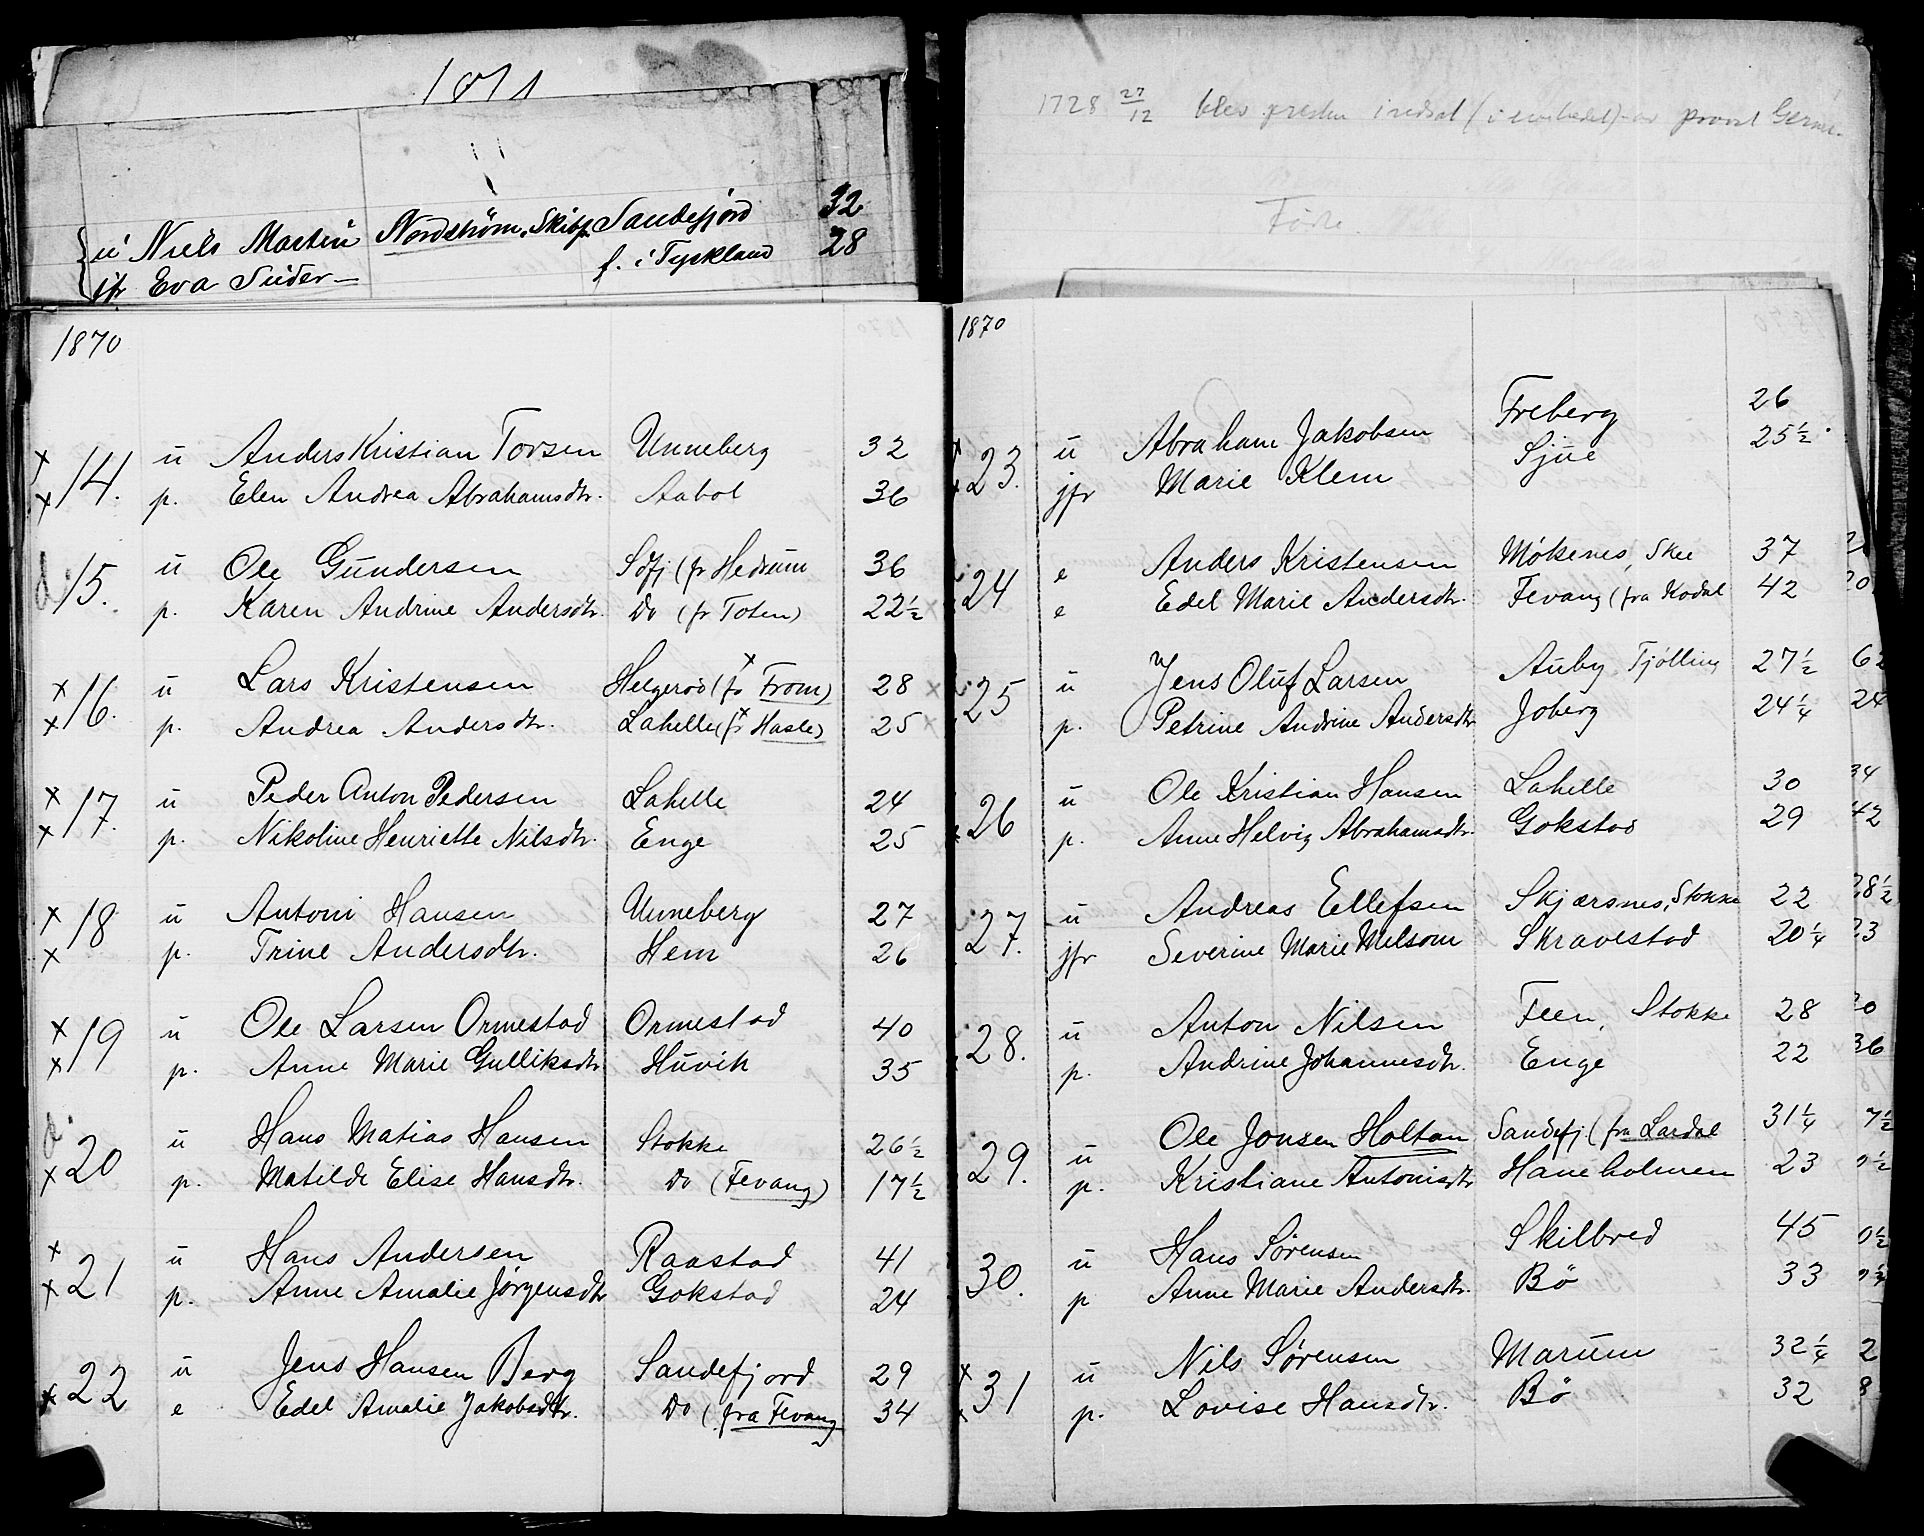 1871
ü Niels Martin Nordstrøm, Skibsf. Sandefjord 32
jfr Eva Suder— f. i Tyskland 28
1870
14. ü Anders Kristian Torsen Unneberg 32
p. Elen Andrea Abrahamsdtr. Aabol 36
15. ü Ole Gündersen Sdfj (fr Hedrum 36
p. Karen Andrine Andersdtr. Do (fr Toten) 22½
16. ü Lars Kristensen Helgerød (fr From) 28
p. Andrea Andersdtr. Lahelle (fr Hasle) 25
17. ü Peder Anton Pedersen Lahelle 24
p. Nikoline Henriette Nilsdtr. Enge 25
18 ü Antoni Hansen Unneberg 27
p. Trine Andersdtr. Hem 26
19 ü Ole Larsen Ormestad Ormestad 40
p. Anne Marie Gulliksdtr Hüvik 35
20 ü Hans Matias Hansen Stokke 26½
p. Matilde Elise Hansdtr. Do (Fevang) 17½
21 ü Hans Andersen Raastad 41
p. Anne Amalie Jørgensdtr Gokstad 24
22 ü Jens Hansen Berg Sandefjord 29
e Edel Amalie Jakobsdtr. Do (fra Fevang 34
1728 27/12 blev presten indsat (i embedet) av provst
Fødte.
1870
23. ü Abraham Jakobsen Freberg 26
jfr Marie Klem Sjüe 25½
24 e Anders Kristensen Møkenes, Skee 37
e Edel Marie Andersdtr. Fevang (fra Kodal 42
25 ü Jens Oluf Larsen Auby Tjølling 27½ 62
p. Petrine Andrine Andersdtr Joberg 24¼ 24
26 ü Ole Kristian Hansen Lahelle 30 34
p. Anne Helvig Abrahamsdtr. Gokstad 29 42
27. ü Andreas Ellefsen Skjærsnes, Stokke 22 28½
jfr Severine Marie Melsom Skravestad 20¼ 23
28. ü Anton Nilsen Feen, Stokke 28
p. Andrine Johannesdtr. Enge 22 36
29. ü Ole Jonsen Holtan Sandefj. (fra Lardal 31¼
p. Kristiane Antonisdtr Haneholmen 23
30. ü Hans Sørensen Skilbred 45
p Anne Marie Andersdtr. Bö 33
31 ü Nils Sørensen Marüm 32¼ 2
p. Lovise Hansdtr. Bö 32 8